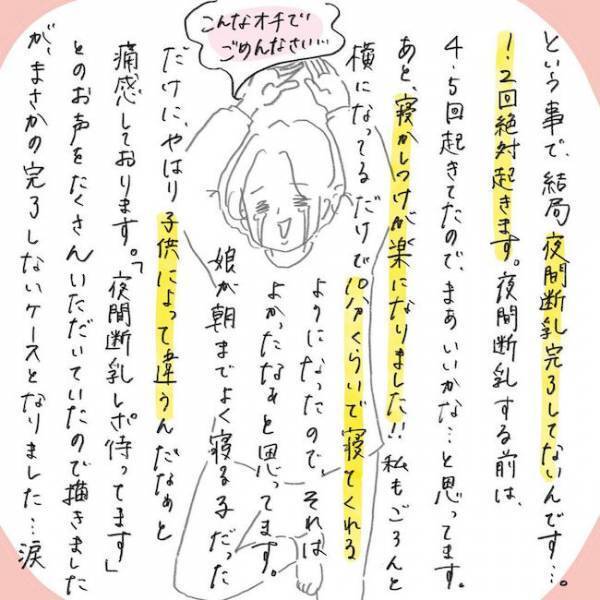 こんなオチで
ごめんなさい…
という事で、結局夜間断乳完了してないんです…。
1.2回絶対起きます。夜間断乳する前は、
4.5回起きてたので、まあいいかな…と思ってます。
あと、寝かしつけが楽になりました!!私もごろんと
横になってるだけで10分くらいで寝てくれる
ようになったので、それは
よかったなぁと思ってます。
娘が朝までよく寝る子だった
だけに、やはり子供によって違うんだなぁと
痛感しております。「夜間断乳レポ待ってます」
とのお声をたくさんいただいていたので描きました
が、まさかの完了しないケースとなりました…涙